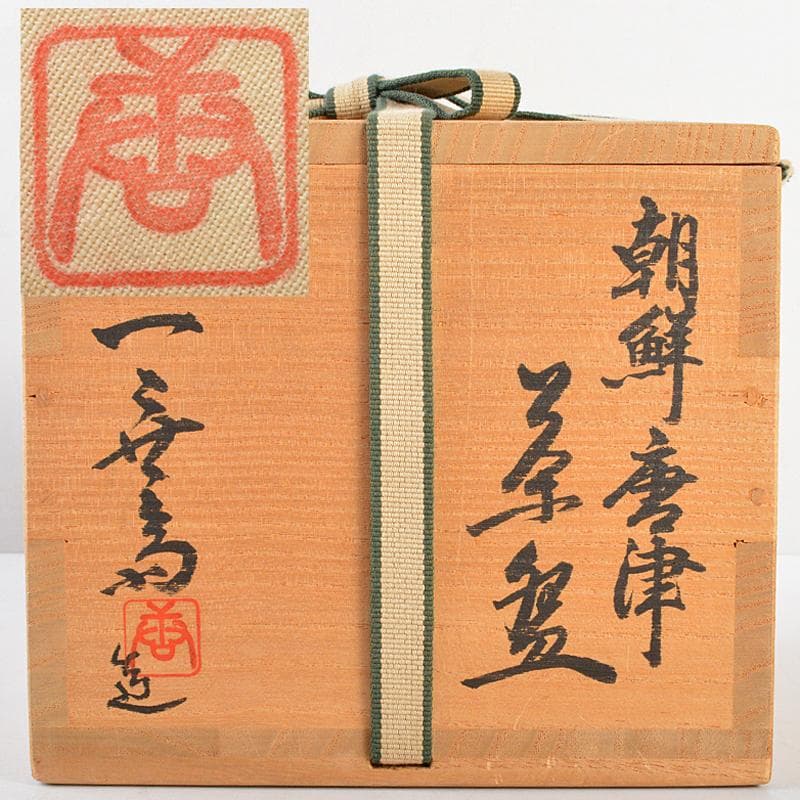 朝鮮唐津
茶盌
一
造